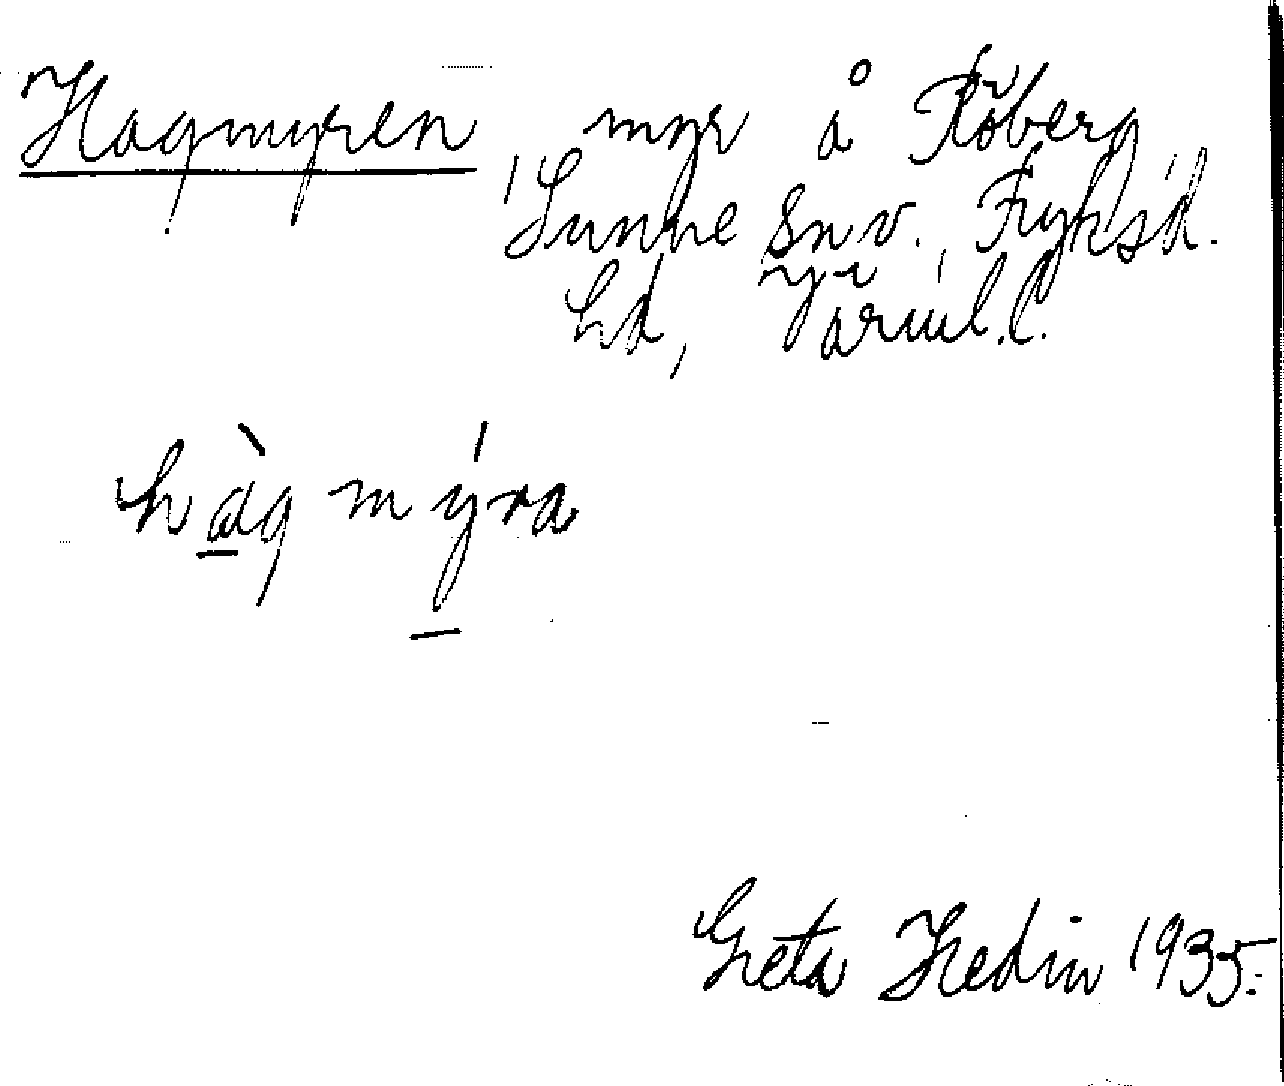 Hagmyren myr å Röberg,
Sunne snv., Fryksd.
hd, Värml.l.
hàgmýra
Greta Hedin 1935.